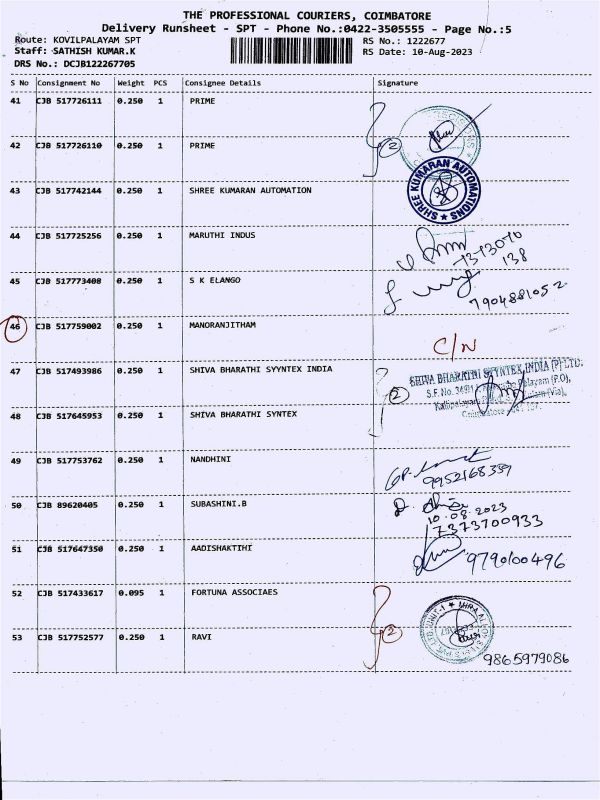 THE PROFESSIONAL COURIERS, COIMBATORE
Delivery Runsheet - SPT - Phone No.:0422-3505555 - Page No.:5
Route: KOVILPALAYAM SPT
RS No.: 1222677
Staff: SATHISH KUMAR.K
RS Date: 10-Aug-2023
DRS No.: DCJB122267705
S No Consignment No Weight PCS Consignee Details Signature
41 CJB 517726111 0.250 1 PRIME
42 CJB 517726110 0.250 1 PRIME
2
43 CJB 517742144 0.250 1 SHREE KUMARAN AUTOMATION
SHREE KUMARAN AUTOMATIONS
44 CJB 517725256 0.250 1 MARUTHI INDUS
138
45 CJB 517773408 0.250 1 S K ELANGO
7904881052
46 CJB 517759002 0.250 1 MANORANJITHAM
C/N
47 CJB 517493986 0.250 1 SHIVA BHARATHI SYYNTEX INDIA
SHIVA BHARATHI SYYNTEX INDIA (P) LTD.
2
48 CJB 517645953 0.250 1 SHIVA BHARATHI SYNTEX
49 CJB 517753762 0.250 1 NANDHINI
9952168339
50 CJB 89620405 0.250 1 SUBASHINI.B
10.08.2023
7373700933
51 CJB 517647350 0.250 1 AADISHAKTIHI
9790100496
52 CJB 517433617 0.095 1 FORTUNA ASSOCIAES
2
53 CJB 517752577 0.250 1 RAVI
9865979086